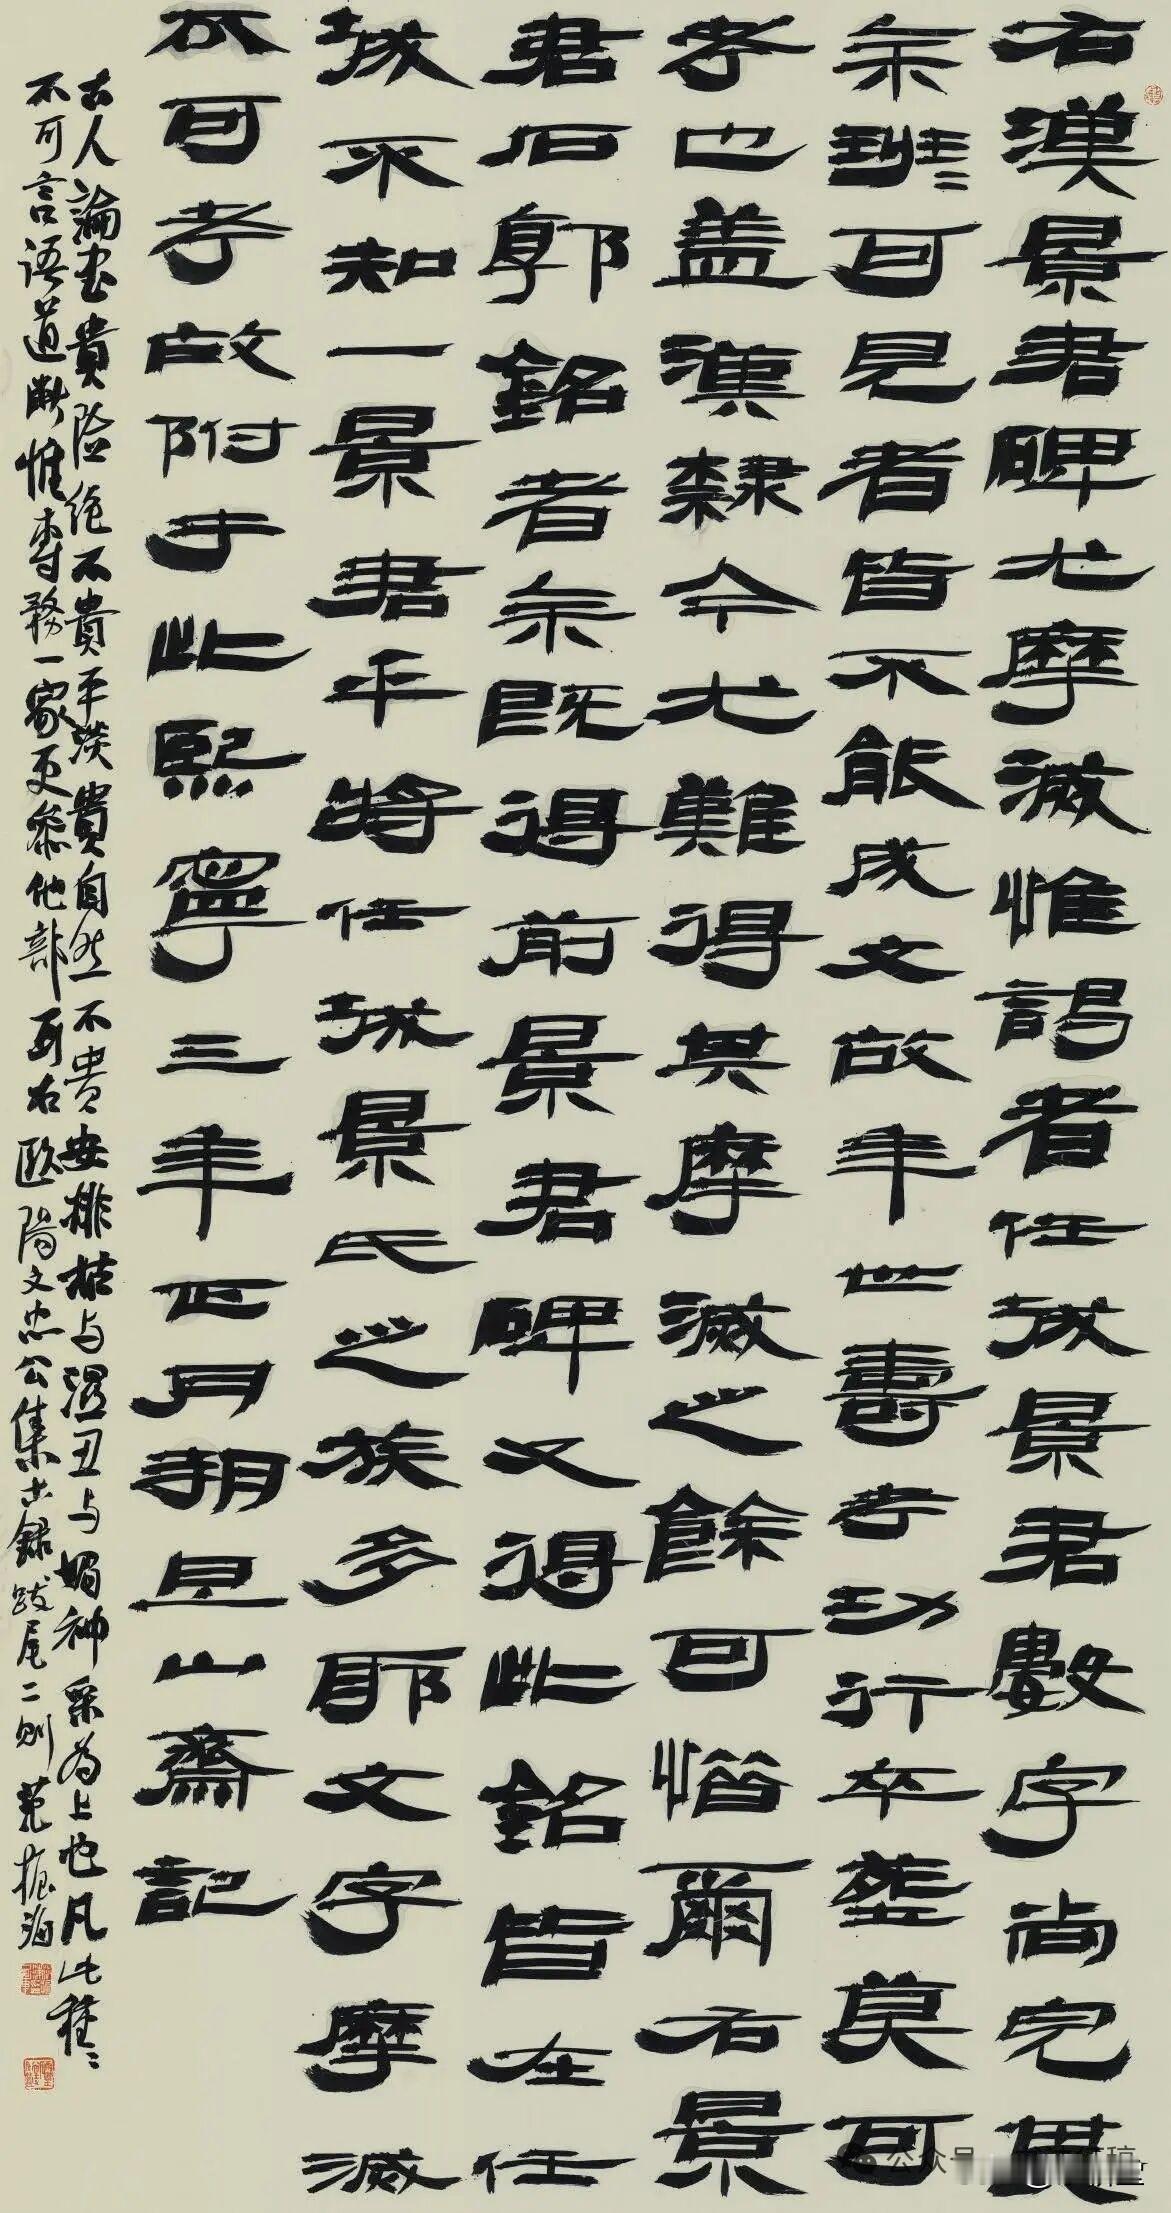 右漢景君碑尤摩滅惟謁者任城景君數字尚完其
余班班可見者皆不能成文故年世壽考功行卒葬莫可
考也蓋漢隸今尤難得其摩滅之餘可惜爾右景
君石郭銘者余既得前景君碑又得此銘皆在任
城不知一景君乎將任城景氏之族多耶文字摩滅
不可考故附于此熙寧三年正月朔旦山齋記
古人論書貴險絕不貴平淡貴自然不貴安排拙与濕丑与媚神采为上也凡此種種
不可言语道断惟專務一家更参他部可右歐陽文忠公集古録跋尾二則范振海
公众号